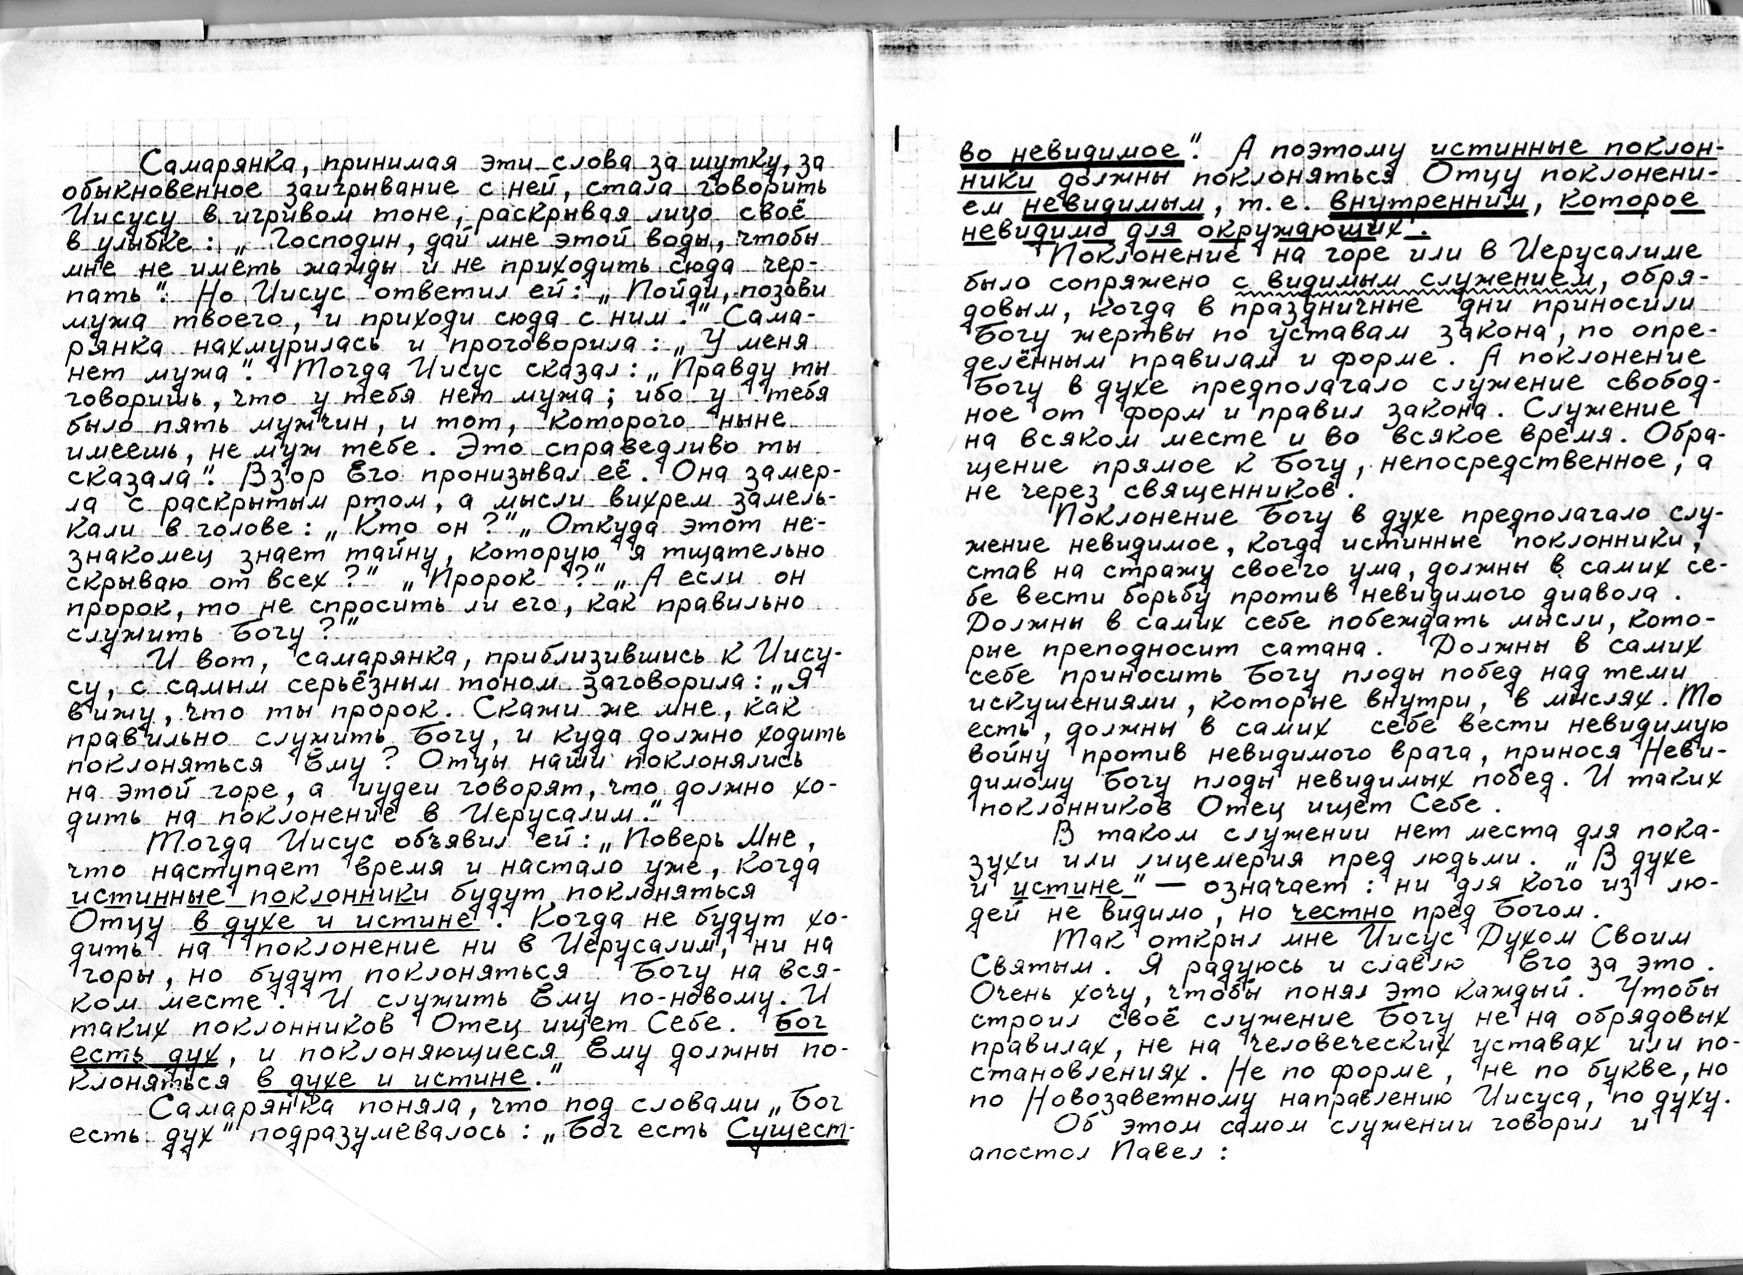 Самарянка, принимая эти слова за шутку, за
обыкновенное заигрывание с ней, стала говорить
Иисусу в игривом тоне, раскрывая лицо своё
в улыбке: „Господин, дай мне этой воды, чтобы
мне не иметь жажды и не приходить сюда чер-
пать". Но Иисус ответил ей: „Пойди, позови
мужа твоего, и приходи сюда с ним." Сама-
рянка нахмурилась и проговорила: „У меня
нет мужа". Тогда Иисус сказал: „Правду ты
говоришь, что у тебя нет мужа; ибо у тебя
было пять мужчин, и тот, которого ныне
имеешь, не муж тебе. Это справедливо ты
сказала". Взор Его пронизывал её. Она замер-
ла с раскрытым ртом, а мысли вихрем замель-
кали в голове: „Кто он?" „Откуда этот не-
знакомец знает тайну, которую я тщательно
скрываю от всех?" „Пророк?" „А если он
пророк, то не спросить ли его, как правильно
служить Богу?"
И вот, самарянка, приблизившись к Иису-
су, с самым серьёзным тоном заговорила: „Я
вижу, что ты пророк. Скажи же мне, как
правильно служить Богу, и куда должно ходить
поклоняться Ему? Отцы наши поклонялись
на этой горе, а иудеи говорят, что должно хо-
дить на поклонение в Иерусалим."
Тогда Иисус объявил ей: „Поверь Мне,
что наступает время и настало уже, когда
истинные поклонники будут поклоняться
Отцу в духе и истине". Когда не будут хо-
дить на поклонение ни в Иерусалим, ни на
горы, но будут поклоняться Богу на вся-
ком месте. И служить Ему по-новому. И
таких поклонников Отец ищет Себе. Бог
есть дух, и поклоняющиеся Ему должны по-
клоняться в духе и истине."
Самарянка поняла, что под словами „Бог
есть дух" подразумевалось: „Бог есть Сущест-
во невидимое". А поэтому истинные поклон-
ники должны поклоняться Отцу поклонени-
ем невидимым, т.е. внутренним, которое
невидимо для окружающих".
Поклонение на горе или в Иерусалиме
было сопряжено с видимым служением, обря-
довым, когда в праздничные дни приносили
Богу жертвы по уставам закона, по опре-
делённым правилам и форме. А поклонение
Богу в духе предполагало служение свобод-
ное от форм и правил закона. Служение
на всяком месте и во всякое время. Обра-
щение прямое к Богу, непосредственное, а
не через священников.
Поклонение Богу в духе предполагало слу-
жение невидимое, когда истинные поклонники,
став на стражу своего ума, должны в самих се-
бе вести борьбу против невидимого диавола.
Должны в самих себе побеждать мысли, кото-
рые преподносит сатана. Должны в самих
себе приносить Богу плоды побед над теми
искушениями, которые внутри, в мыслях. То
есть, должны в самих себе вести невидимую
войну против невидимого врага, принося Неви-
димому Богу плоды невидимых побед. И таких
поклонников Отец ищет Себе.
В таком служении нет места для пока-
зухи или лицемерия пред людьми. „В духе
и истине" — означает: ни для кого из лю-
дей не видимо, но честно пред Богом.
Так открыл мне Иисус Духом Своим
Святым. Я радуюсь и славлю Его за это.
Очень хочу, чтобы понял это каждый. Чтобы
строил своё служение Богу не на обрядовых
правилах, не на человеческих уставах или по-
становлениях. Не по форме, не по букве, но
по Новозаветному направлению Иисуса, по духу.
Об этом самом служении говорил и
апостол Павел: